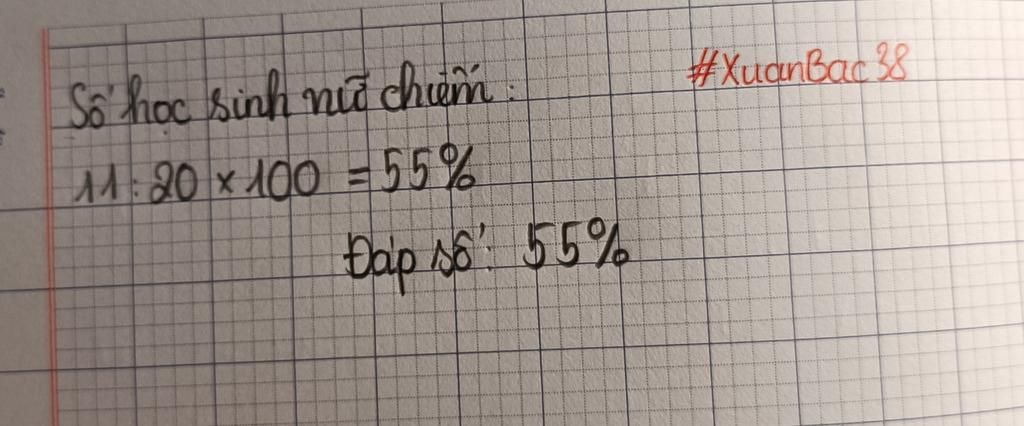 #XuanBac38
Số học sinh nữ chiếm:
11:20 × 100 = 55%
Đáp số: 55%